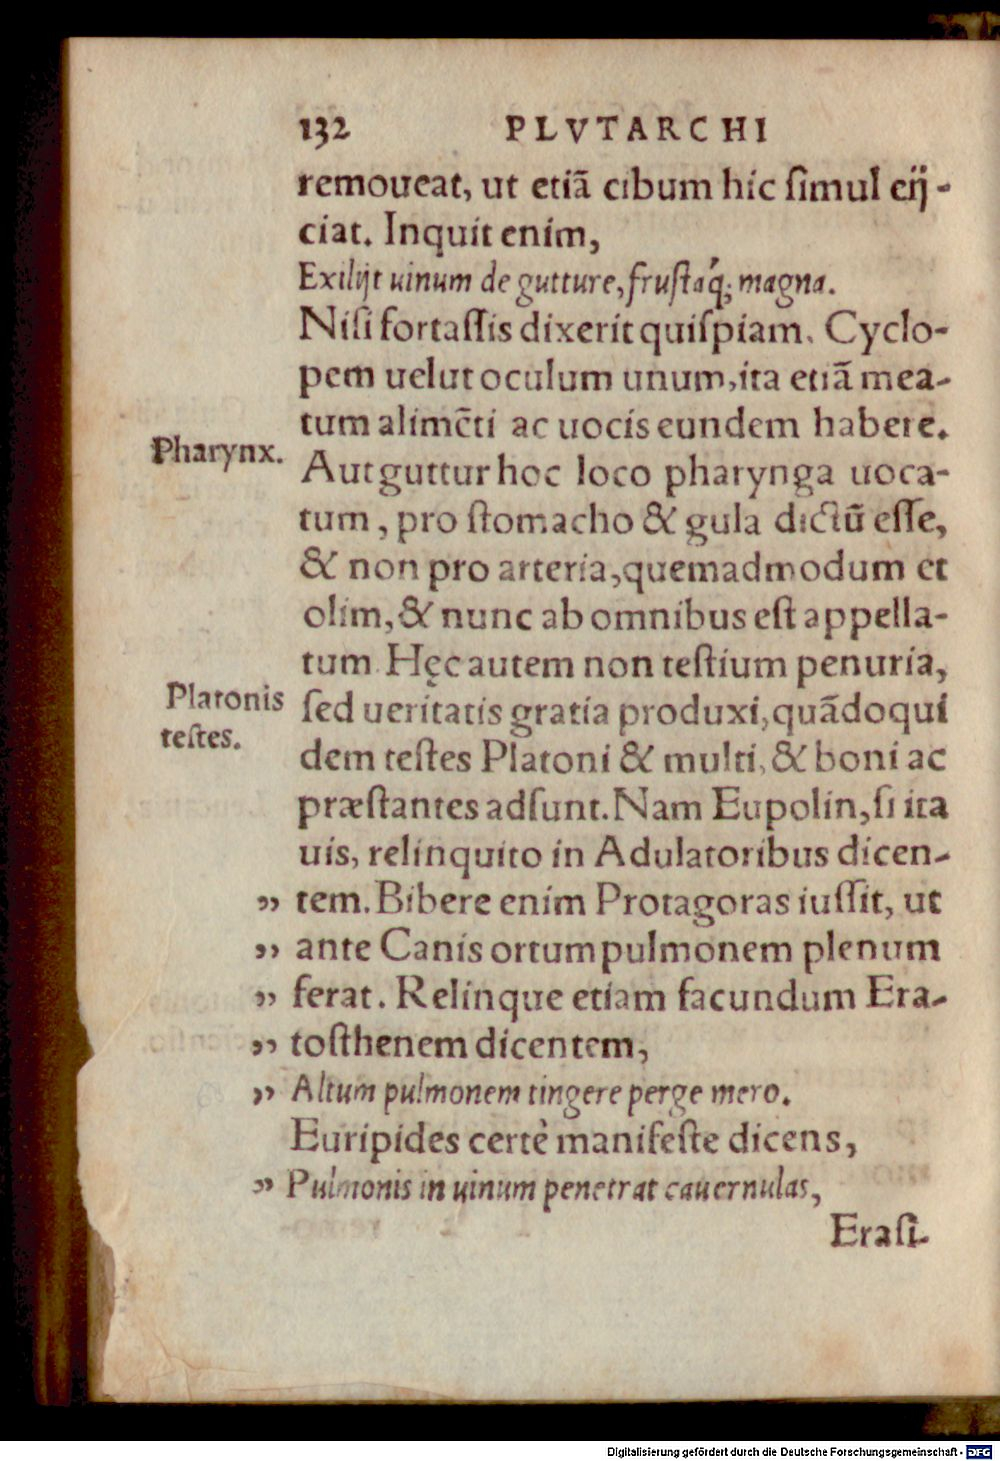 132 PLVTARCHI
remoueat, ut etiã cibum hic ſimul eij-
ciat. Inquit enim,
Exilijt uinum de gutture, fruſtaq́; magna.
Niſi fortaſſis dixerit quiſpiam. Cyclo-
pem uelut oculum unum, ita etiã mea-
tum alimẽti ac uocis eundem habere.
Pharynx.
Aut guttur hoc loco pharynga uoca-
tum, pro ſtomacho & gula dictũ eſſe,
& non pro arteria, quemadmodum et
olim, & nunc ab omnibus eſt appella-
tum. Hęc autem non teſtium penuria,
Platonis
teſtes.
ſed ueritatis gratia produxi, quãdoqui
dem teſtes Platoni & multi, & boni ac
præſtantes adſunt. Nam Eupolin, ſi ita
uis, relinquito in Adulatoribus dicen-
„ tem. Bibere enim Protagoras iuſſit, ut
„ ante Canis ortum pulmonem plenum
„ ferat. Relinque etiam facundum Era-
„ toſthenem dicentem,
„ Altum pulmonem tingere perge mero.
Euripides certè manifeſte dicens,
„ Pulmonis in uinum penetrat cauernulas,
Eraſi-
Digitalisierung gefördert durch die Deutsche Forschungsgemeinschaft - DFG